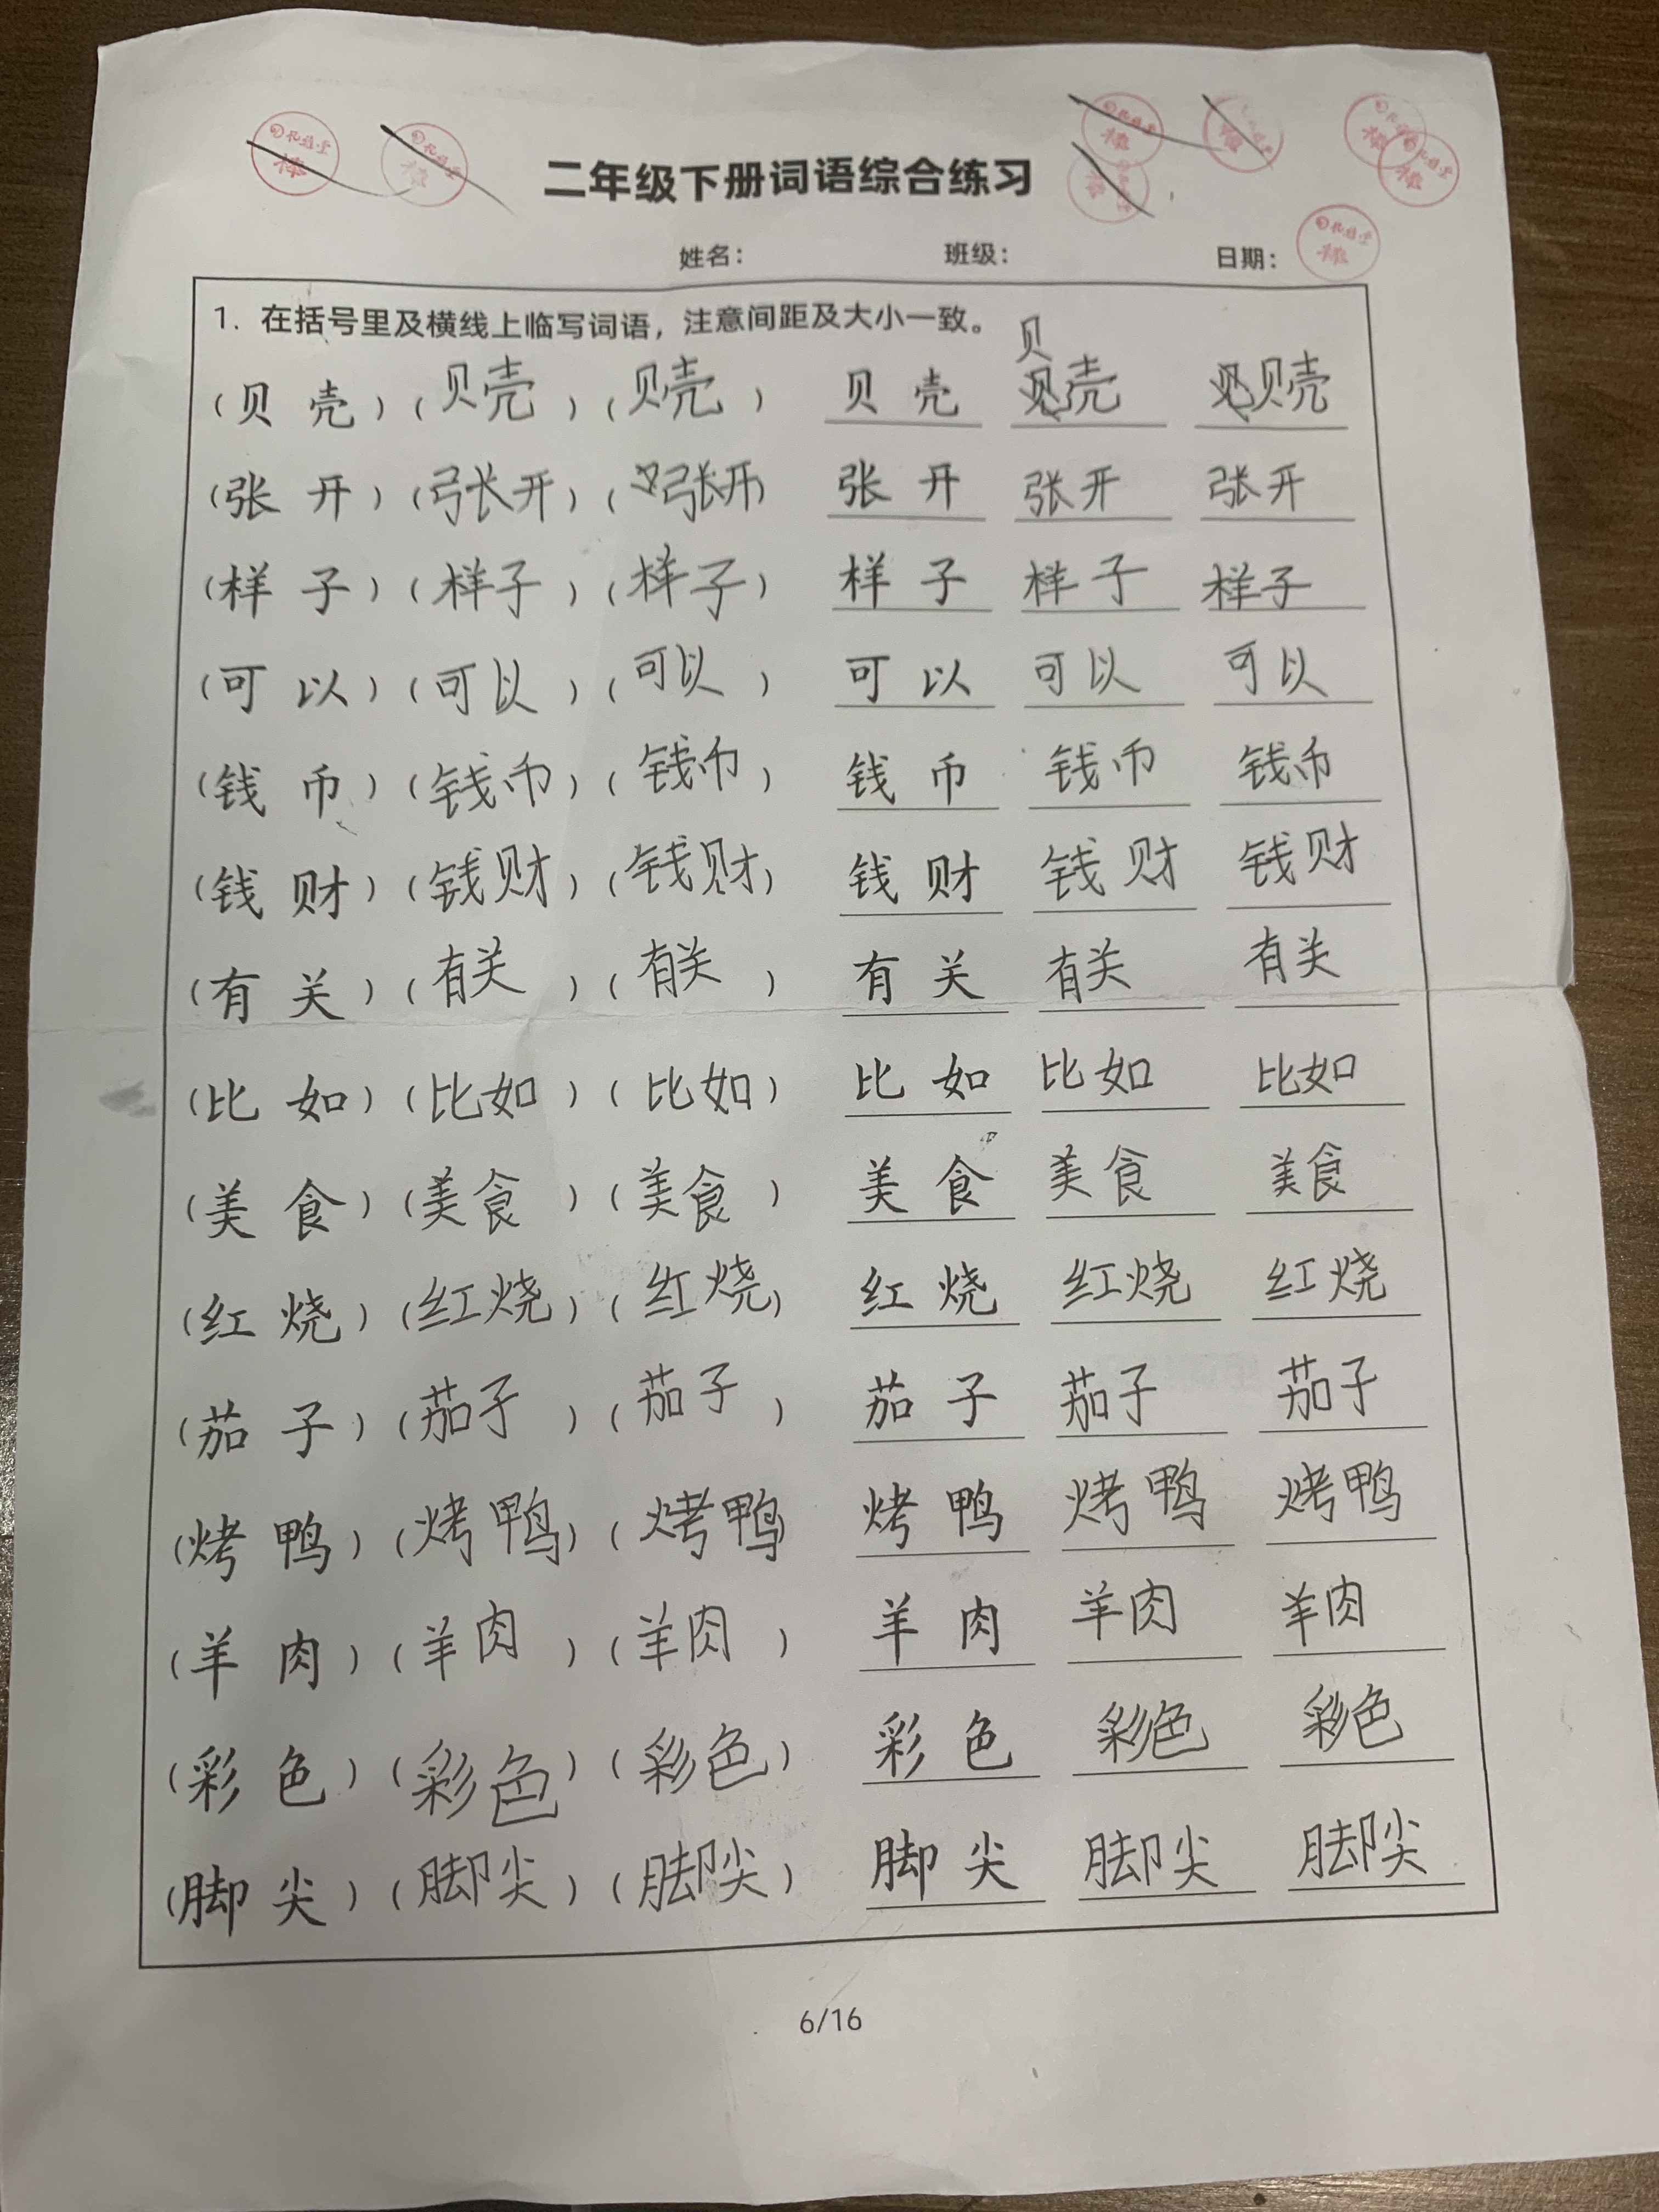 二年级下册词语综合练习
姓名： 班级： 日期：
1. 在括号里及横线上临写词语，注意间距及大小一致。
贝
（贝 壳）（贝壳）（贝壳） 贝 壳 壳 贝壳
（张 开）（张开）（张开） 张 开 张开 张开
（样 子）（样子）（样子） 样 子 样子 样子
（可 以）（可以）（可以） 可 以 可以 可以
（钱 币）（钱币）（钱币） 钱 币 钱币 钱币
（钱 财）（钱财）（钱财） 钱 财 钱财 钱财
（有 关）（有关）（有关） 有 关 有关 有关
（比 如）（比如）（比如） 比 如 比如 比如
（美 食）（美食）（美食） 美 食 美食 美食
（红 烧）（红烧）（红烧） 红 烧 红烧 红烧
（茄 子）（茄子）（茄子） 茄 子 茄子 茄子
（烤 鸭）（烤鸭）（烤鸭） 烤 鸭 烤鸭 烤鸭
（羊 肉）（羊肉）（羊肉） 羊 肉 羊肉 羊肉
（彩 色）（彩色）（彩色） 彩 色 彩色 彩色
（脚 尖）（脚尖）（脚尖） 脚 尖 脚尖 脚尖
6/16